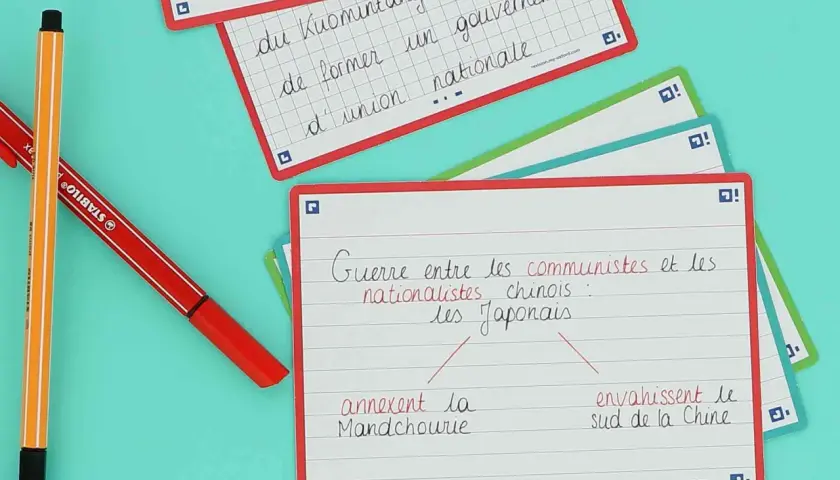 du Kuomintang
de former un
d'union nationale
Guerre entre les communistes et les
nationalistes chinois :
les Japonais
annexent la
Mandchourie
envahissent le
sud de la Chine
STABILO®